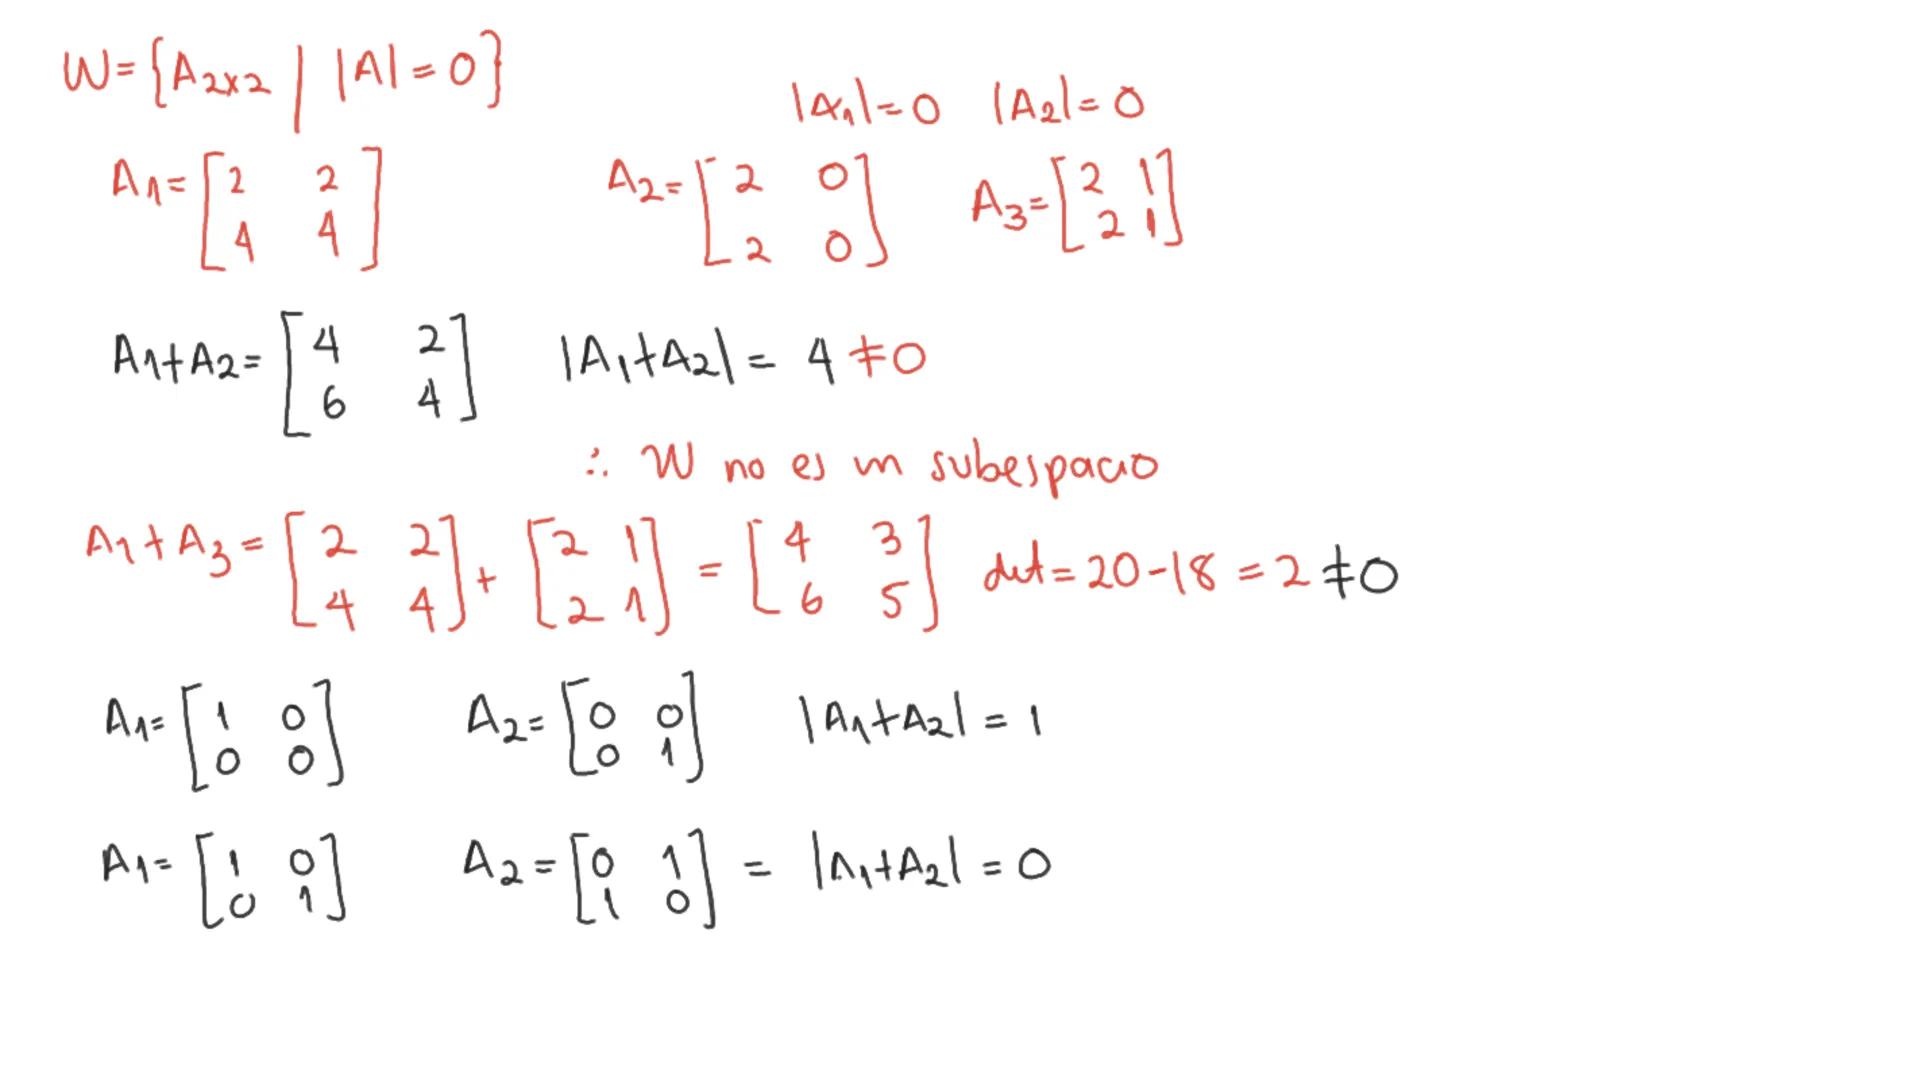 W={A₂ₓ₂ | |A|=0}
|A₁|=0 |A₂|=0
A₁=[2 2; 4 4] A₂=[2 0; 2 0] A₃=[2 1; 2 1]
A₁+A₂=[4 2; 6 4] |A₁+A₂|= 4 ≠0
∴ W no es un subespacio
A₁+A₃=[2 2; 4 4]+[2 1; 2 1]=[4 3; 6 5] det=20-18=2≠0
A₁=[1 0; 0 0] A₂=[0 0; 0 1] |A₁+A₂|=1
A₁=[1 0; 0 1] A₂=[0 1; 1 0] = |A₁+A₂|=0